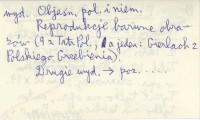 wyd. Objaśn. pol. i niem.
Reprodukcje barwne obra-
zów (9 z Tatr Pol., a jeden: Gierlach z
Polskiego Grzebienia).
Drugie wyd. → poz. ....